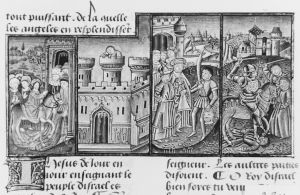 tout puissant. de la quelle
les angeles en resplendisset
Jesus de iour en
iour enseignant le
peuple disrael es
seigneur. Les aultres parties
disoient. O Roy disrael
bien